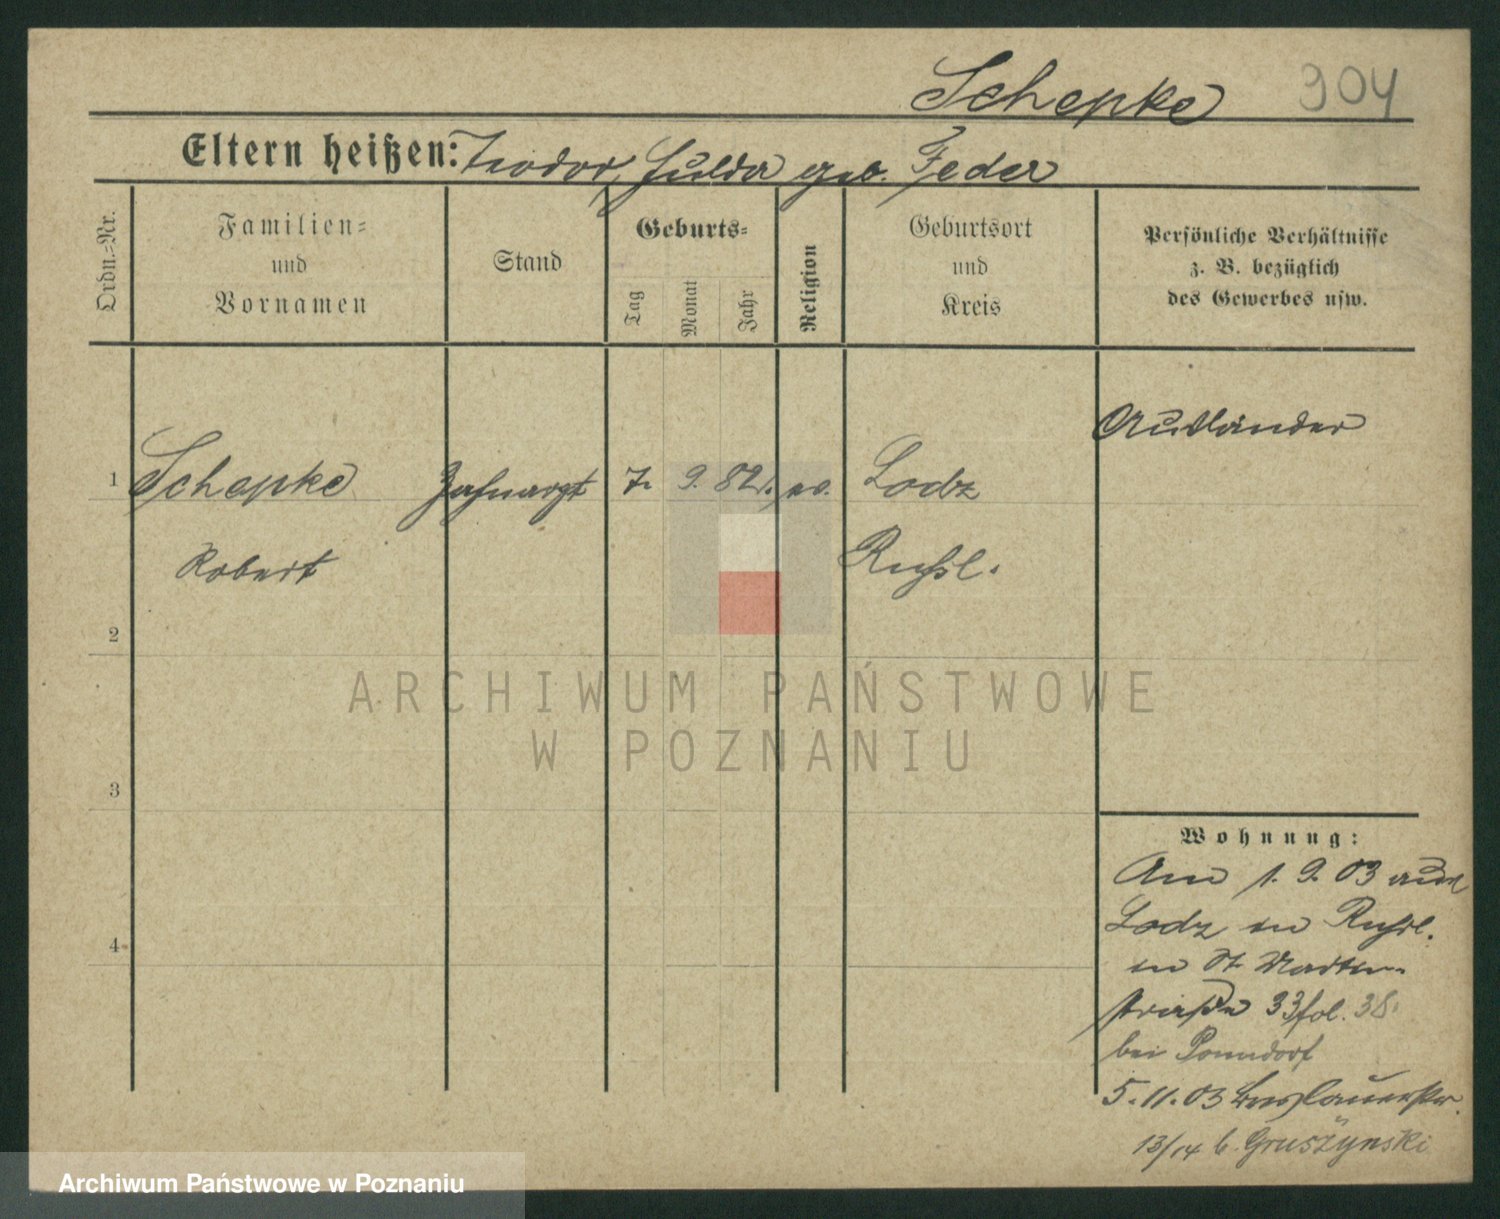 Schepke 904
Eltern heißen: Teodor, Hulda geb. Feder
Ordn.=Nr.
Familien=
und
Vornamen
Stand
Geburts=
Tag
Monat
Jahr
Religion
Geburtsort
und
Kreis
Persönliche Verhältnisse
z. B. bezüglich
des Gewerbes usw.
Ausländer
1 Schepke Zahnarzt 7. 9. 82. ev. Lodz
Robert Rußl.
2
3
4
ARCHIWUM PAŃSTWOWE
W POZNANIU
Wohnung:
Am 1. 9. 03 aus
Lodz in Rußl.
in St. Martin-
straße 33 fol. 38.
bei Ponndorf
5. 11. 03 Breslauerstr.
13/14 b. Gruszynski
Archiwum Państwowe w Poznaniu